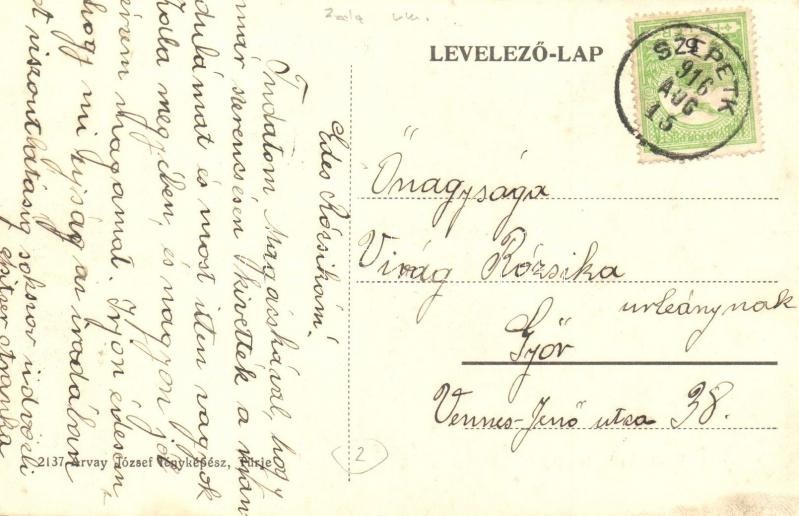 Zala
LEVELEZŐ-LAP
SZEPETK
916
AUG
15
Édes Rózsikám!
Tudatom Magácskával, hogy
már szerencsésen kivették a man
dulámat és most itten vagyok
Zala megyében, és nagyon jól
érzem magamat. Írjon édesem
hogy mi újság az irodában
viszontlátásig sokszor üdvözli
Őnagysága
Virág Rózsika
urleánynak
Győr
Vennes-Jenő utsa 38.
2
2137 Árvay József fényképész, Türje